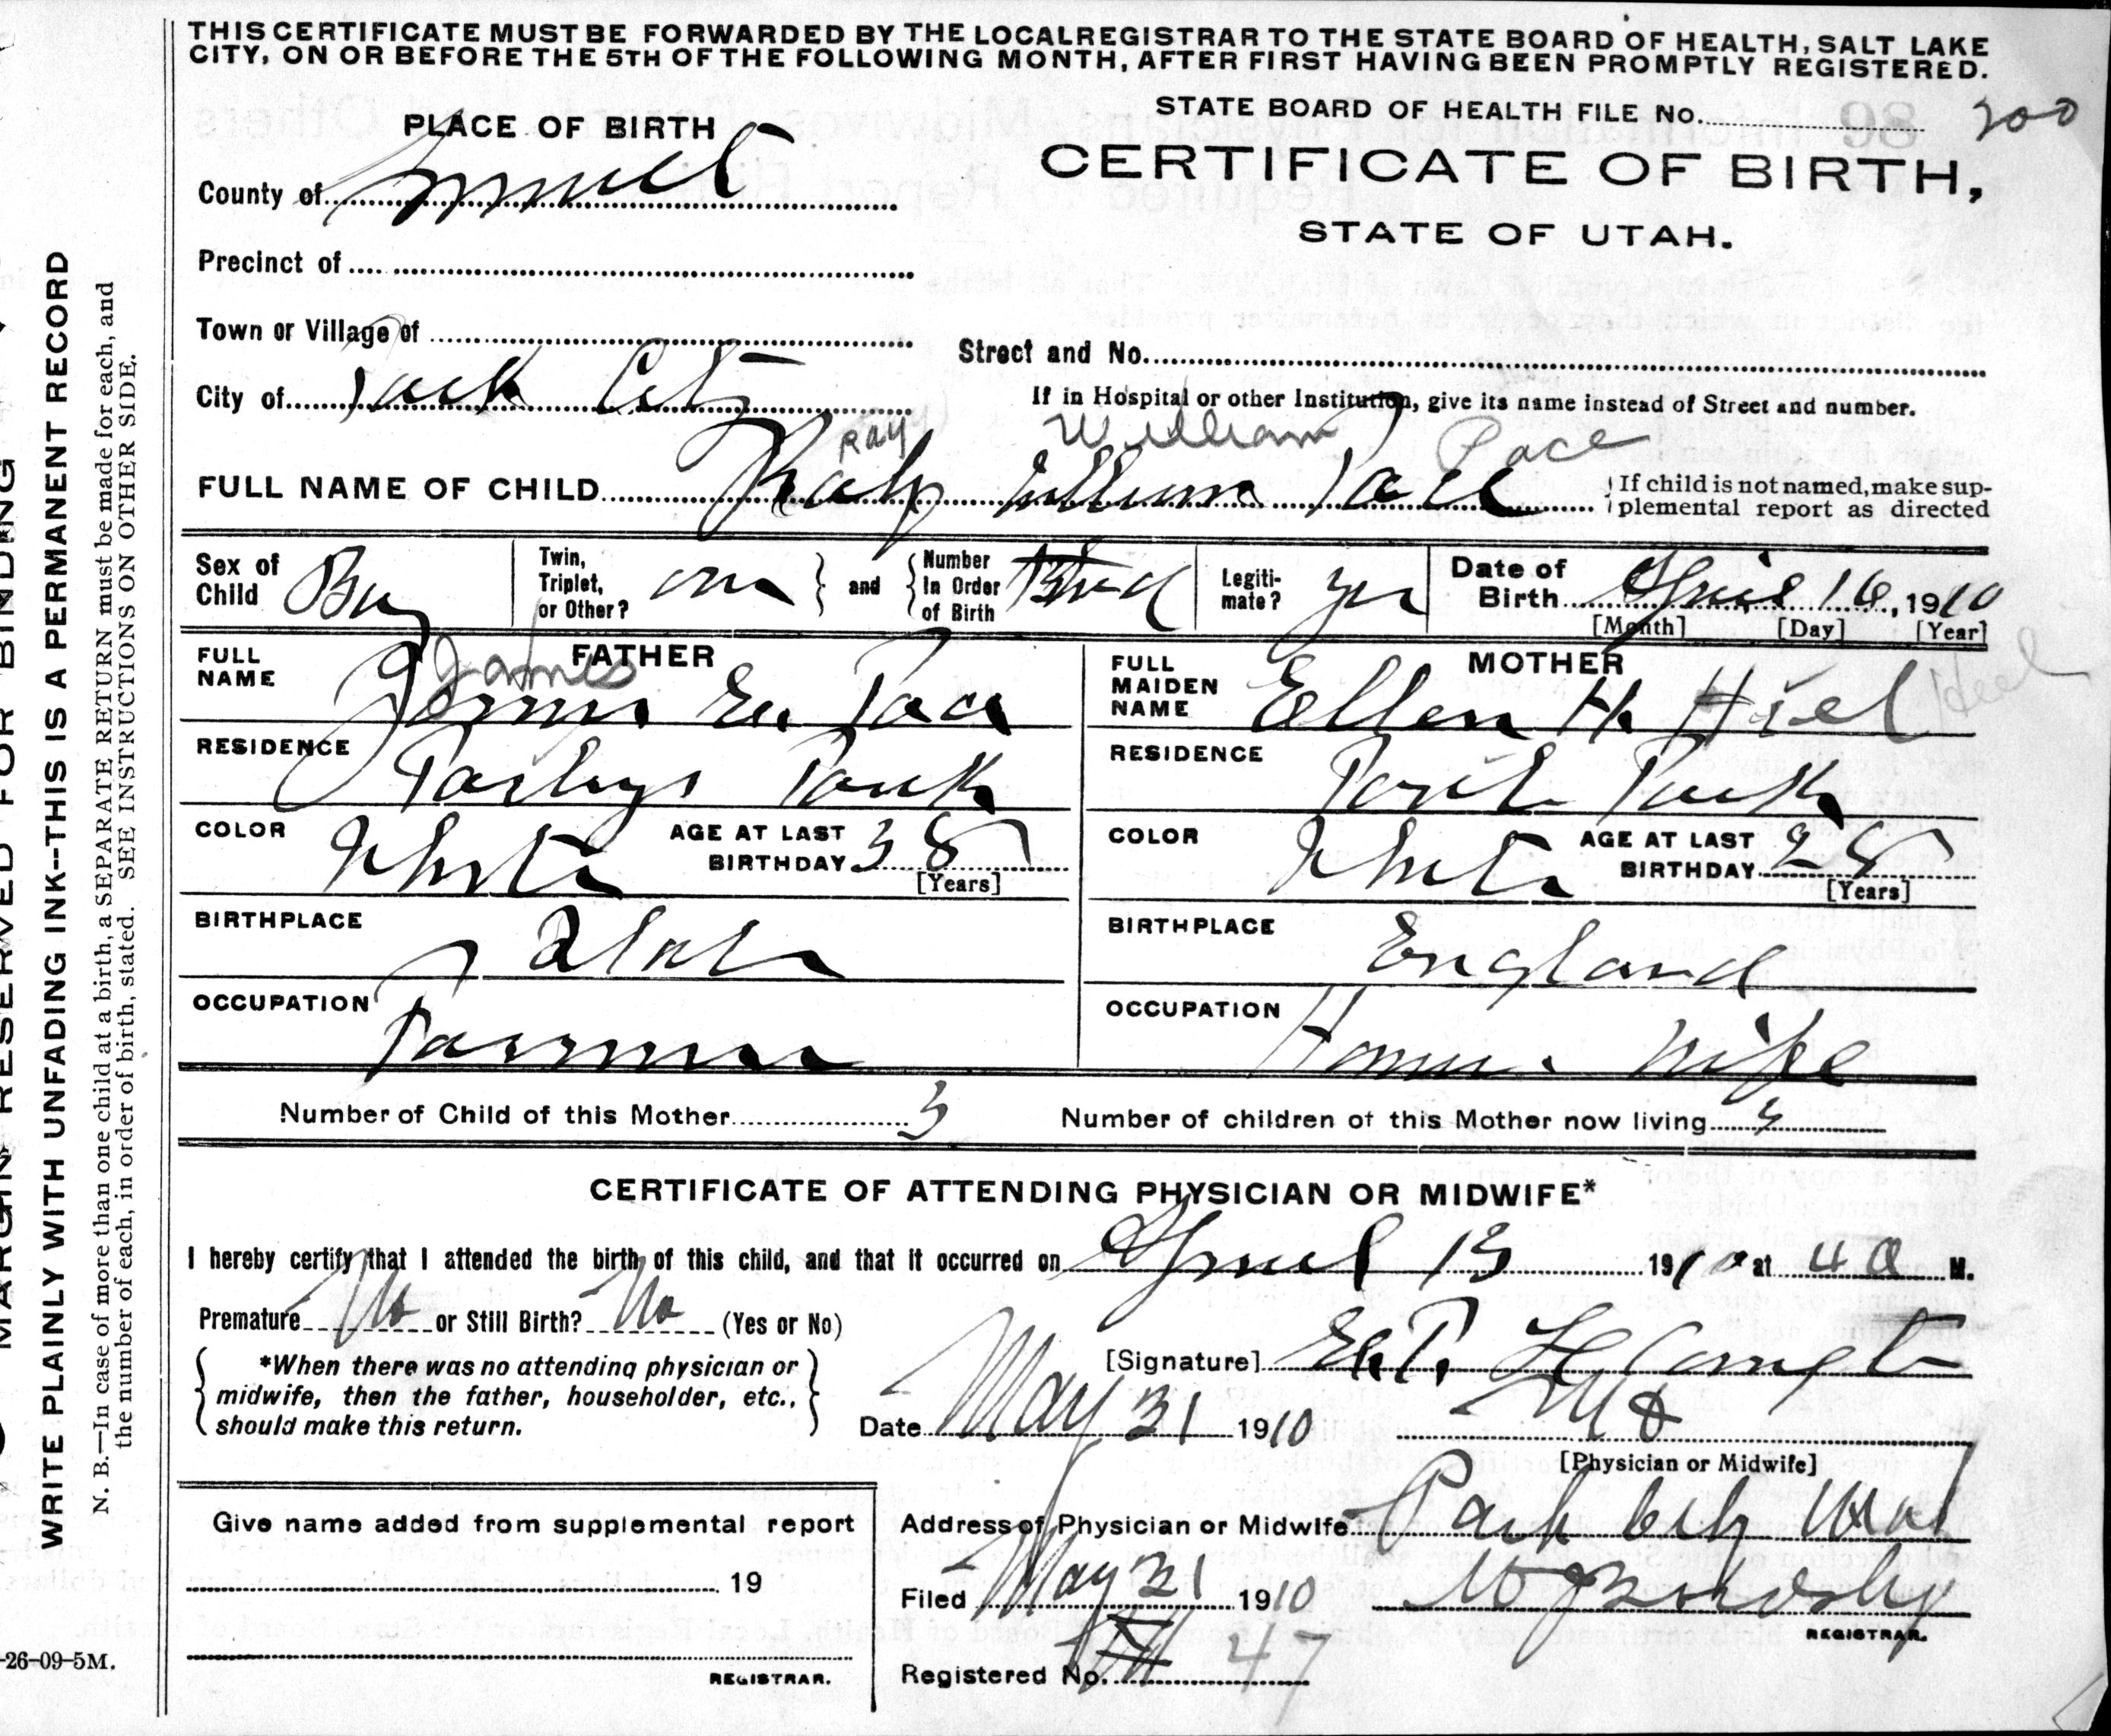 THIS CERTIFICATE MUST BE FORWARDED BY THE LOCALREGISTRAR TO THE STATE BOARD OF HEALTH, SALT LAKE
CITY, ON OR BEFORE THE 5TH OF THE FOLLOWING MONTH, AFTER FIRST HAVING BEEN PROMPTLY REGISTERED.
STATE BOARD OF HEALTH FILE No. 200
86
PLACE OF BIRTH
CERTIFICATE OF BIRTH,
STATE OF UTAH.
County of Summit
Precinct of
Town or Village of
Street and No.
City of Park City
If in Hospital or other Institution, give its name instead of Street and number.
Ray William Pace
FULL NAME OF CHILD William Pace
If child is not named, make sup-
plemental report as directed
Sex of Child Boy
Twin, Triplet, or Other? one
and
Number In Order of Birth
Legiti-mate? yes
Date of Birth April 16, 1910
[Month] [Day] [Year]
FATHER
FULL NAME James E. Pace
James
RESIDENCE Parleys Park
COLOR White
AGE AT LAST BIRTHDAY 38
[Years]
BIRTHPLACE Utah
OCCUPATION Farmer
MOTHER
FULL MAIDEN NAME Ellen H. Hiel
Heel
RESIDENCE Park
COLOR White
AGE AT LAST BIRTHDAY 28
[Years]
BIRTHPLACE England
OCCUPATION House wife
Number of Child of this Mother 3
Number of children of this Mother now living
CERTIFICATE OF ATTENDING PHYSICIAN OR MIDWIFE*
I hereby certify that I attended the birth of this child, and that it occurred on April 13 1910 at 4 a M.
Premature No or Still Birth? No (Yes or No)
*When there was no attending physician or
midwife, then the father, householder, etc.,
should make this return.
[Signature] E. P.
Date May 31 1910
MD
[Physician or Midwife]
Give name added from supplemental report
19
REGISTRAR.
Address of Physician or Midwife Park City Utah
Filed May 31 1910
REGISTRAR.
Registered No. 47
MARGIN RESERVED FOR BINDING
WRITE PLAINLY WITH UNFADING INK--THIS IS A PERMANENT RECORD
N. B.—In case of more than one child at a birth, a SEPARATE RETURN must be made for each, and
the number of each, in order of birth, stated. SEE INSTRUCTIONS ON OTHER SIDE.
-26-09-5M.